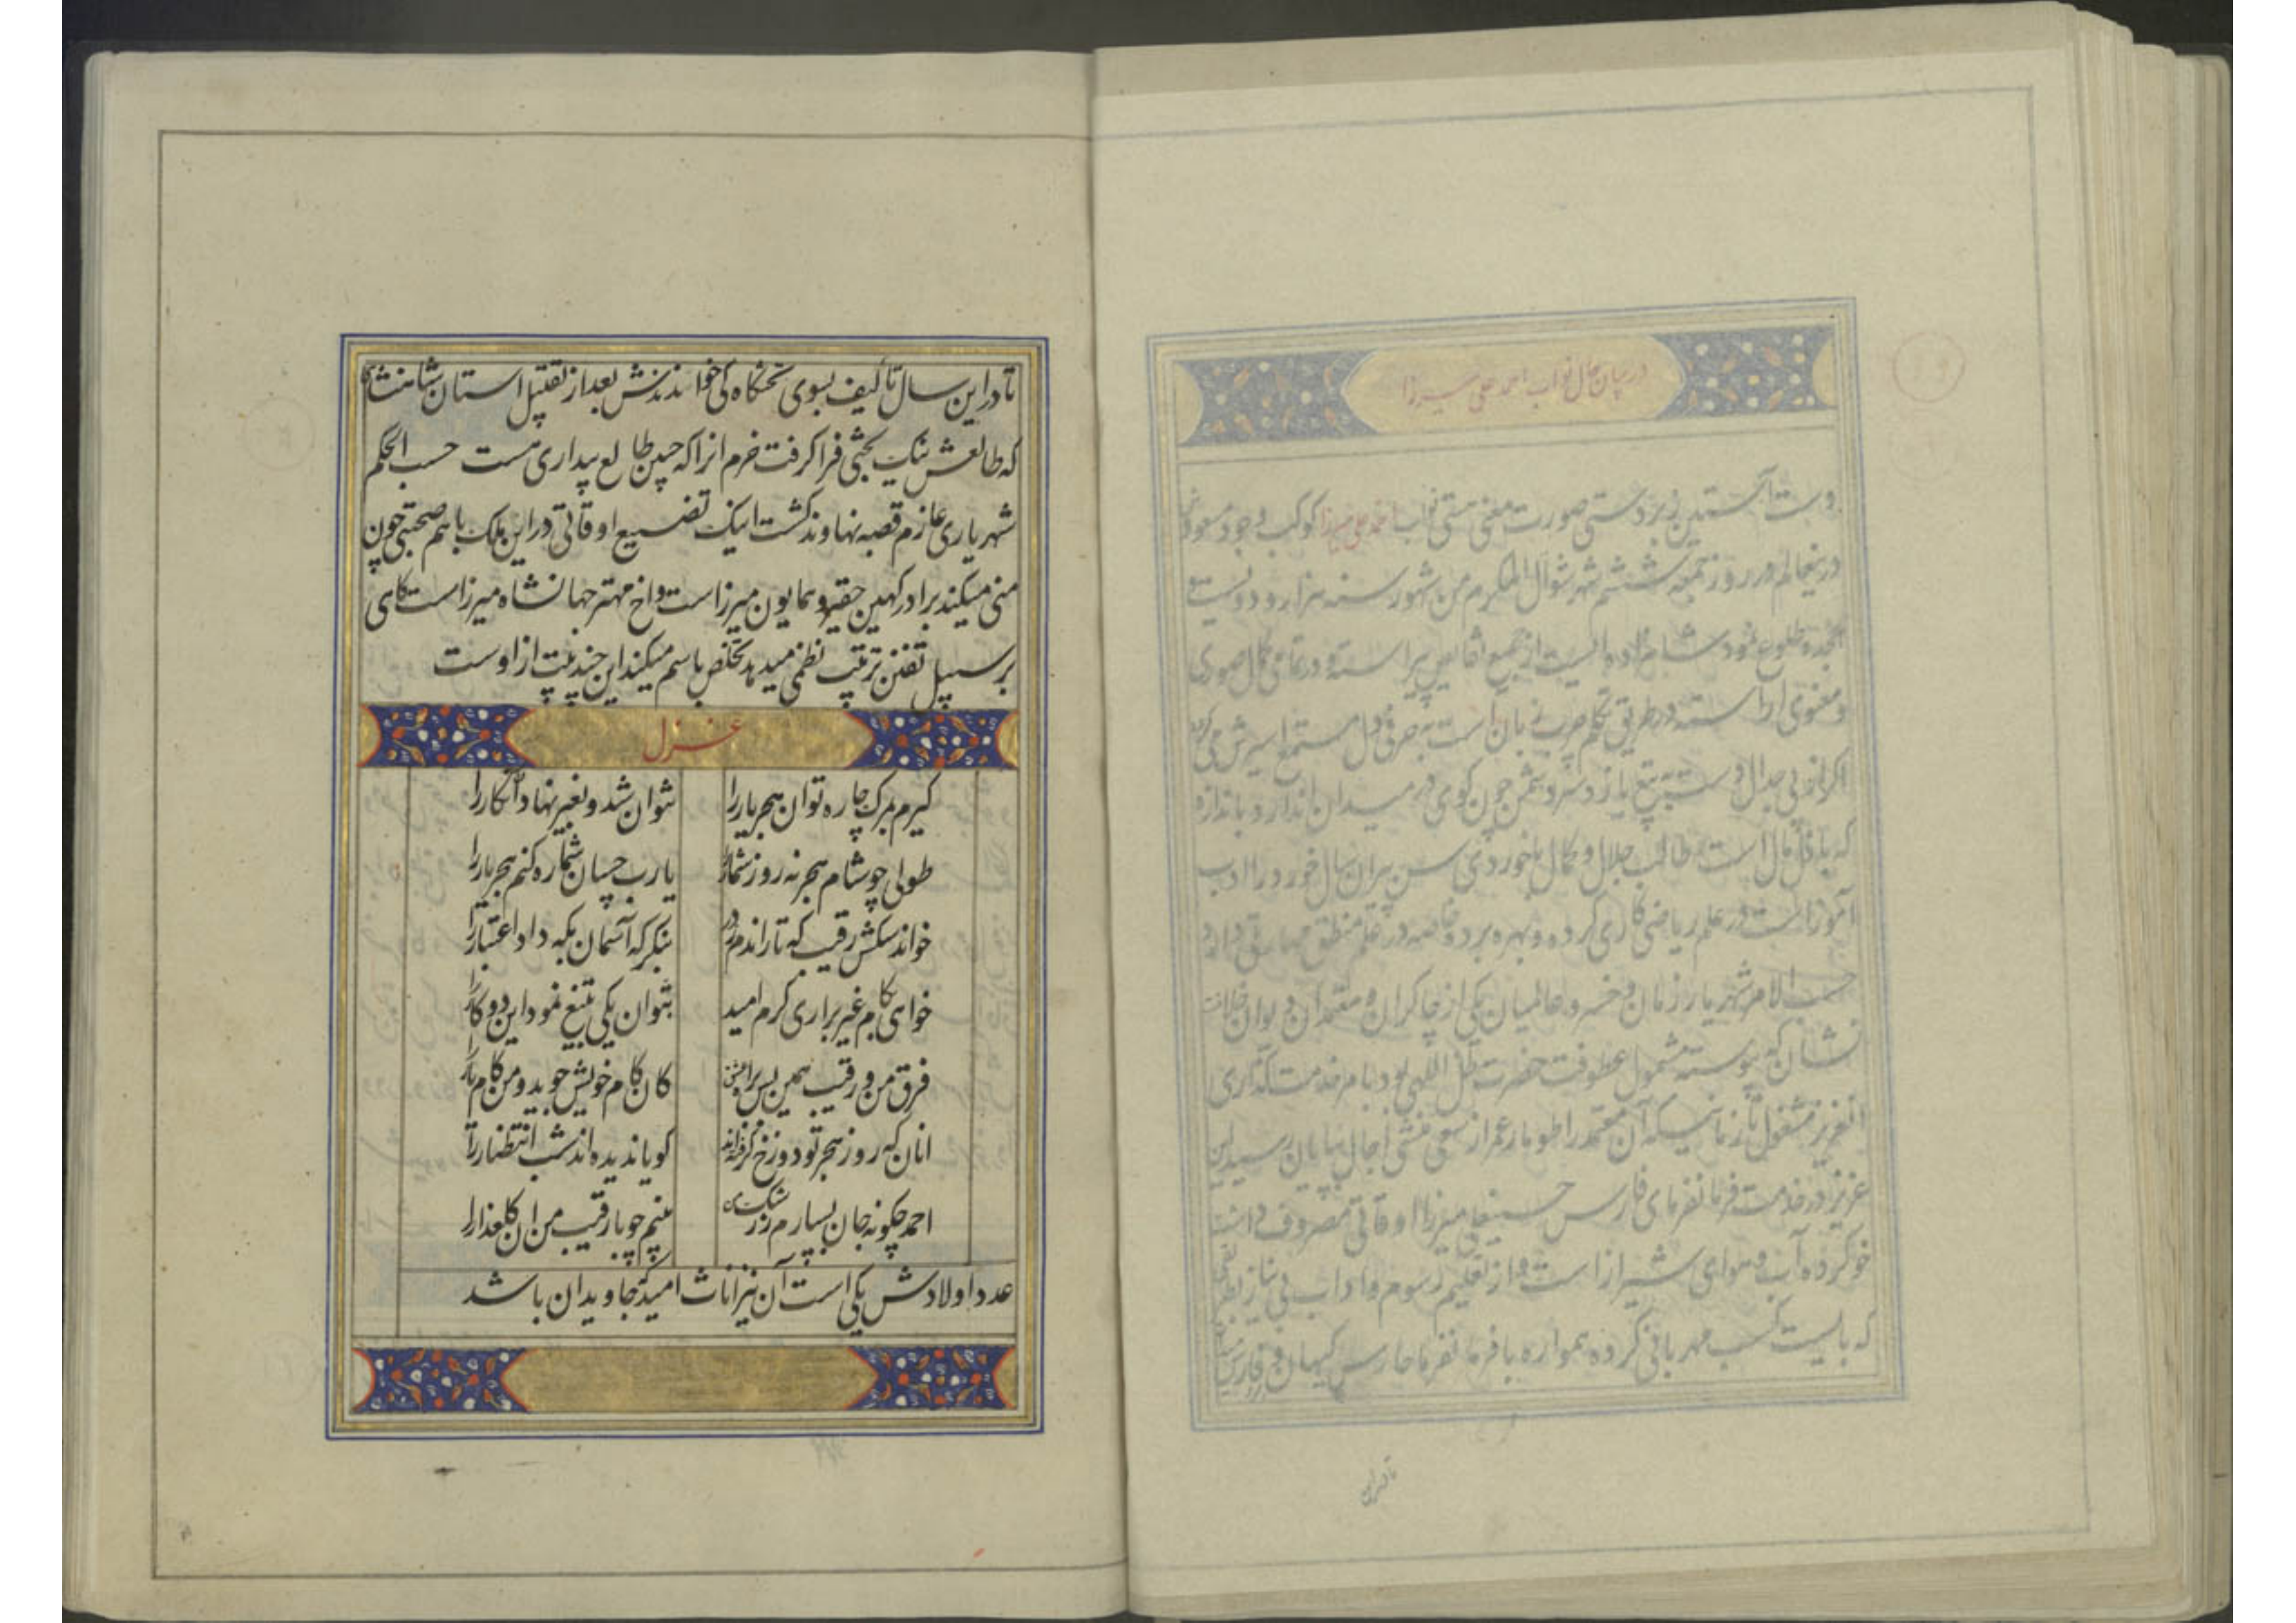 در بیان حال نواب احمد علی میرزا
دست صورت معنی نواب احمد علی میرزا کوکب وجود مسعودش
در روز جمعه ششم شهر شوال المکرم من شهور سنه هزار و دویست و
هجده طلوع نمود شاهزاده ایست از جمیع نقایص پیراسته و در تمامی کمال صوری
و معنوی آراسته در طریق تکلم چرب زبان است به حرفی دل مستمع اسیرش می کردد
اکر از پی جدال دست به تیغ یازد سر دشمن چون کوی در میدان اندازد
که با مال است طالب جلال و کمال با خوردی سن پیران سال خورد را ادب
آموز است در علم ریاضی کاری کرده و بهره برده خاصه در علم منطق مهارتی دارد
حسب الامر شهریار زمان و خسرو عالمیان یکی از چاکران و معتمدان دیوان خلافت
نشان که پیوسته مشمول عطوفت حضرت ظل اللهی بود بامر خدمت گذاری
مشغول تا زمانیکه آن معتمد را طومار عمر از سعی منشی آجال بپایان رسید این
عزیز در خدمت فرمانفرمای فارس حسینعلی میرزا اوقاتی مصروف داشت
خو کرده آب و هوای شیراز است و از تعلیم رسوم و آداب بی نیاز
که بایست کسب مهربانی کرده همواره با فرمانفرما حارس کیهان و فارس
تا در این
تا در این سال تالیف بسوی تختگاه کی خواندندش بعد از تقبیل آستان شاهنشاه
که طالعش نیک بختی فرا کرفت خرم انرا که چنین طالع بیداری هست حسب الحکم
شهریاری عازم قصبه نهاوند کشت اینک تضییع اوقاتی در این ملک با هم صحبتی چون
منی میکند برادر کهین حقیر و همایون میرزاست و اخ مهتر جهانشاه میرزاست کاهی
بر سبیل تفنن ترتیب نظمی میدهد تخلص باسم میکند این چند بیت از اوست
غزل
کیرم بمرک چاره توان هجر یار را نتوان شد و بغیر نهاد آن نکار را
طولی چو شام هجر نه روز شمار را یا رب چسان شماره کنم هجر یار را
خواند سکش رقیب که تا راندم ز در بنکر که آسمان بکه داد اعتبار را
خواهی که کام غیر براری کرم امید بتوان یکی بتیغ نمود این دو کار را
فرق من و رقیب همین بس براه عشق کان کام خویش جوید و من کام یار را
انان که روز هجر تو دوزخ کرفته اند کویا ندیده اند شب انتظار را
احمد چکونه جان نسپارم ز رشک بینم چو با رقیب من ان کلعذار را
عدد اولادش یکی است آن نیز اناث امید که جاویدان باشد